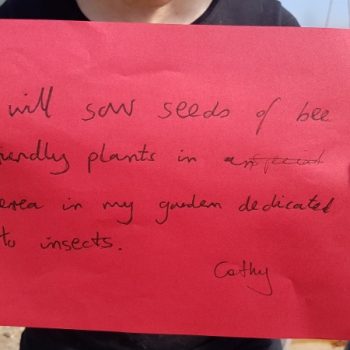 will sow seeds of bee
iendly plants in an
area in my garden dedicated
to insects.
Cathy